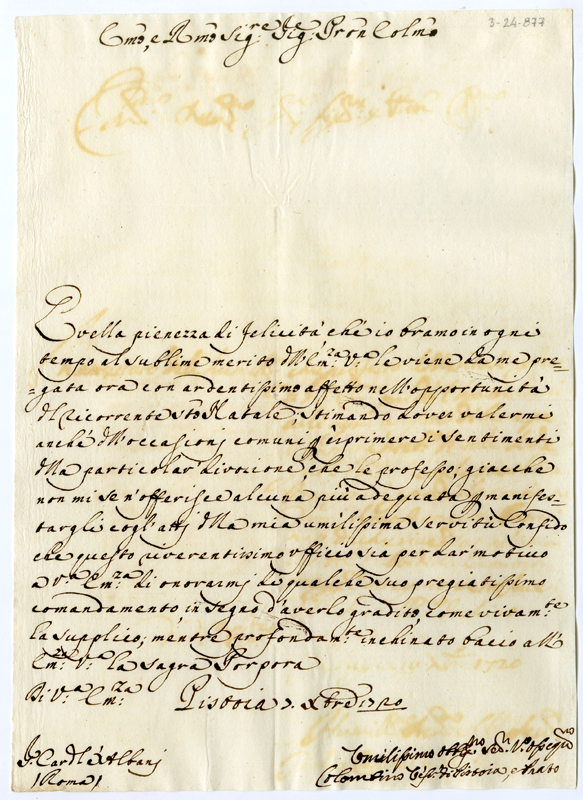 3-24-877
Emo, e Rmo Sig.re Sig.r Pron Colmo
Quella pienezza di felicità che io bramo in ogni
tempo al sublime merito dell'Em.za V.a le viene da me pre=
=gata ora con ardentissimo affetto nell'opportunità
del ricorrente Sto Natale; Stimando dover valermi
anche dell'occasionj comuni p esprimere i sentimenti
della particolar divozione, che le professo; giacche
non mi se n'offerisce alcuna più adequata p manifes=
targli cogl'attj della mia umilissima servitù. Confido
che questo riverentissimo ufficio sia per dar' motivo
a V.a Em.za di onorarmj di qualche suo pregiatissimo
comandamento in segno d'averlo gradito, come vivam.te
la supplico; mentre profondam.te inchinato bacio all'
Em.za V.a la Sagra Porpora
Di V.a Em.za Pistoia 7. Xbre 1720
S.r Cardle Albanj
/Roma/
Umilissimo Sed. V.o Osseq.mo
Colombino Vesc.o di Pistoia, e Prato